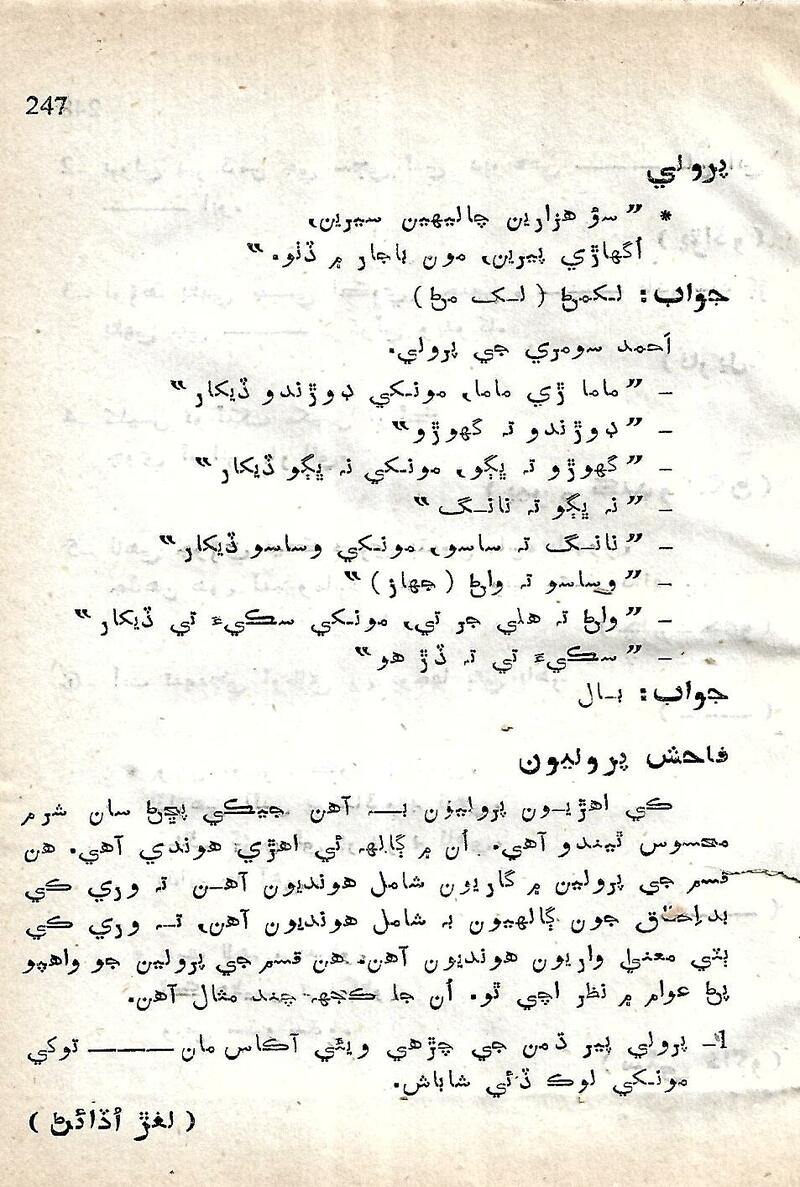 247
پرولي
* ”سؤ هزارين چاليهين سيرين،
اُگهاڙي پيرين، مون باجار ۾ ڏٺو.“
جواب: لکمڻ ( لک مڻ )
احمد سومري جي پرولي.
– ”ماما ڙي ماما، مونکي ڊوڙندو ڏيکار“
– ”ڊوڙندو تہ گهوڙو“
– ”گهوڙو تہ ڀڳو، مونکي نہ ڀڳو ڏيکار“
– ”نہ ڀڳو تہ نانگ“
– ”نانگ تہ ساسو، مونکي وساسو ڏيکار“
– ”وساسو تہ واڻ ( جهاز ) “
– ”واڻ تہ هلي جر تي، مونکي سڪيءَ تي ڏيکار“
– ”سڪيءَ تي تہ ڏڙ هو“
جواب: بال
فاحش پروليون
ڪي اهڙيون پروليون بہ آهن جيڪي پڇڻ سان شرم
محسوس ٿيندو آهي. اُن ۾ ڳالهہ ئي اهڙي هوندي آهي. هن
قسم جي پرولين ۾ گاريون شامل هونديون آهن تہ وري ڪي
بداخلاق جون ڳالهيون بہ شامل هونديون آهن، تہ وري ڪي
ٻٽي معنيٰ واريون هونديون آهن. هن قسم جي پرولين جو واهپو
پڻ عوام ۾ نظر اچي ٿو. اُن جا ڪجهہ چند مثال آهن.
1– پرولي پير ڌمن جي چڙهي ويئي آڪاس مان ——— توکي
مونکي لوڪ ڏئي شاباش.
( لغڙ اُڏائڻ )